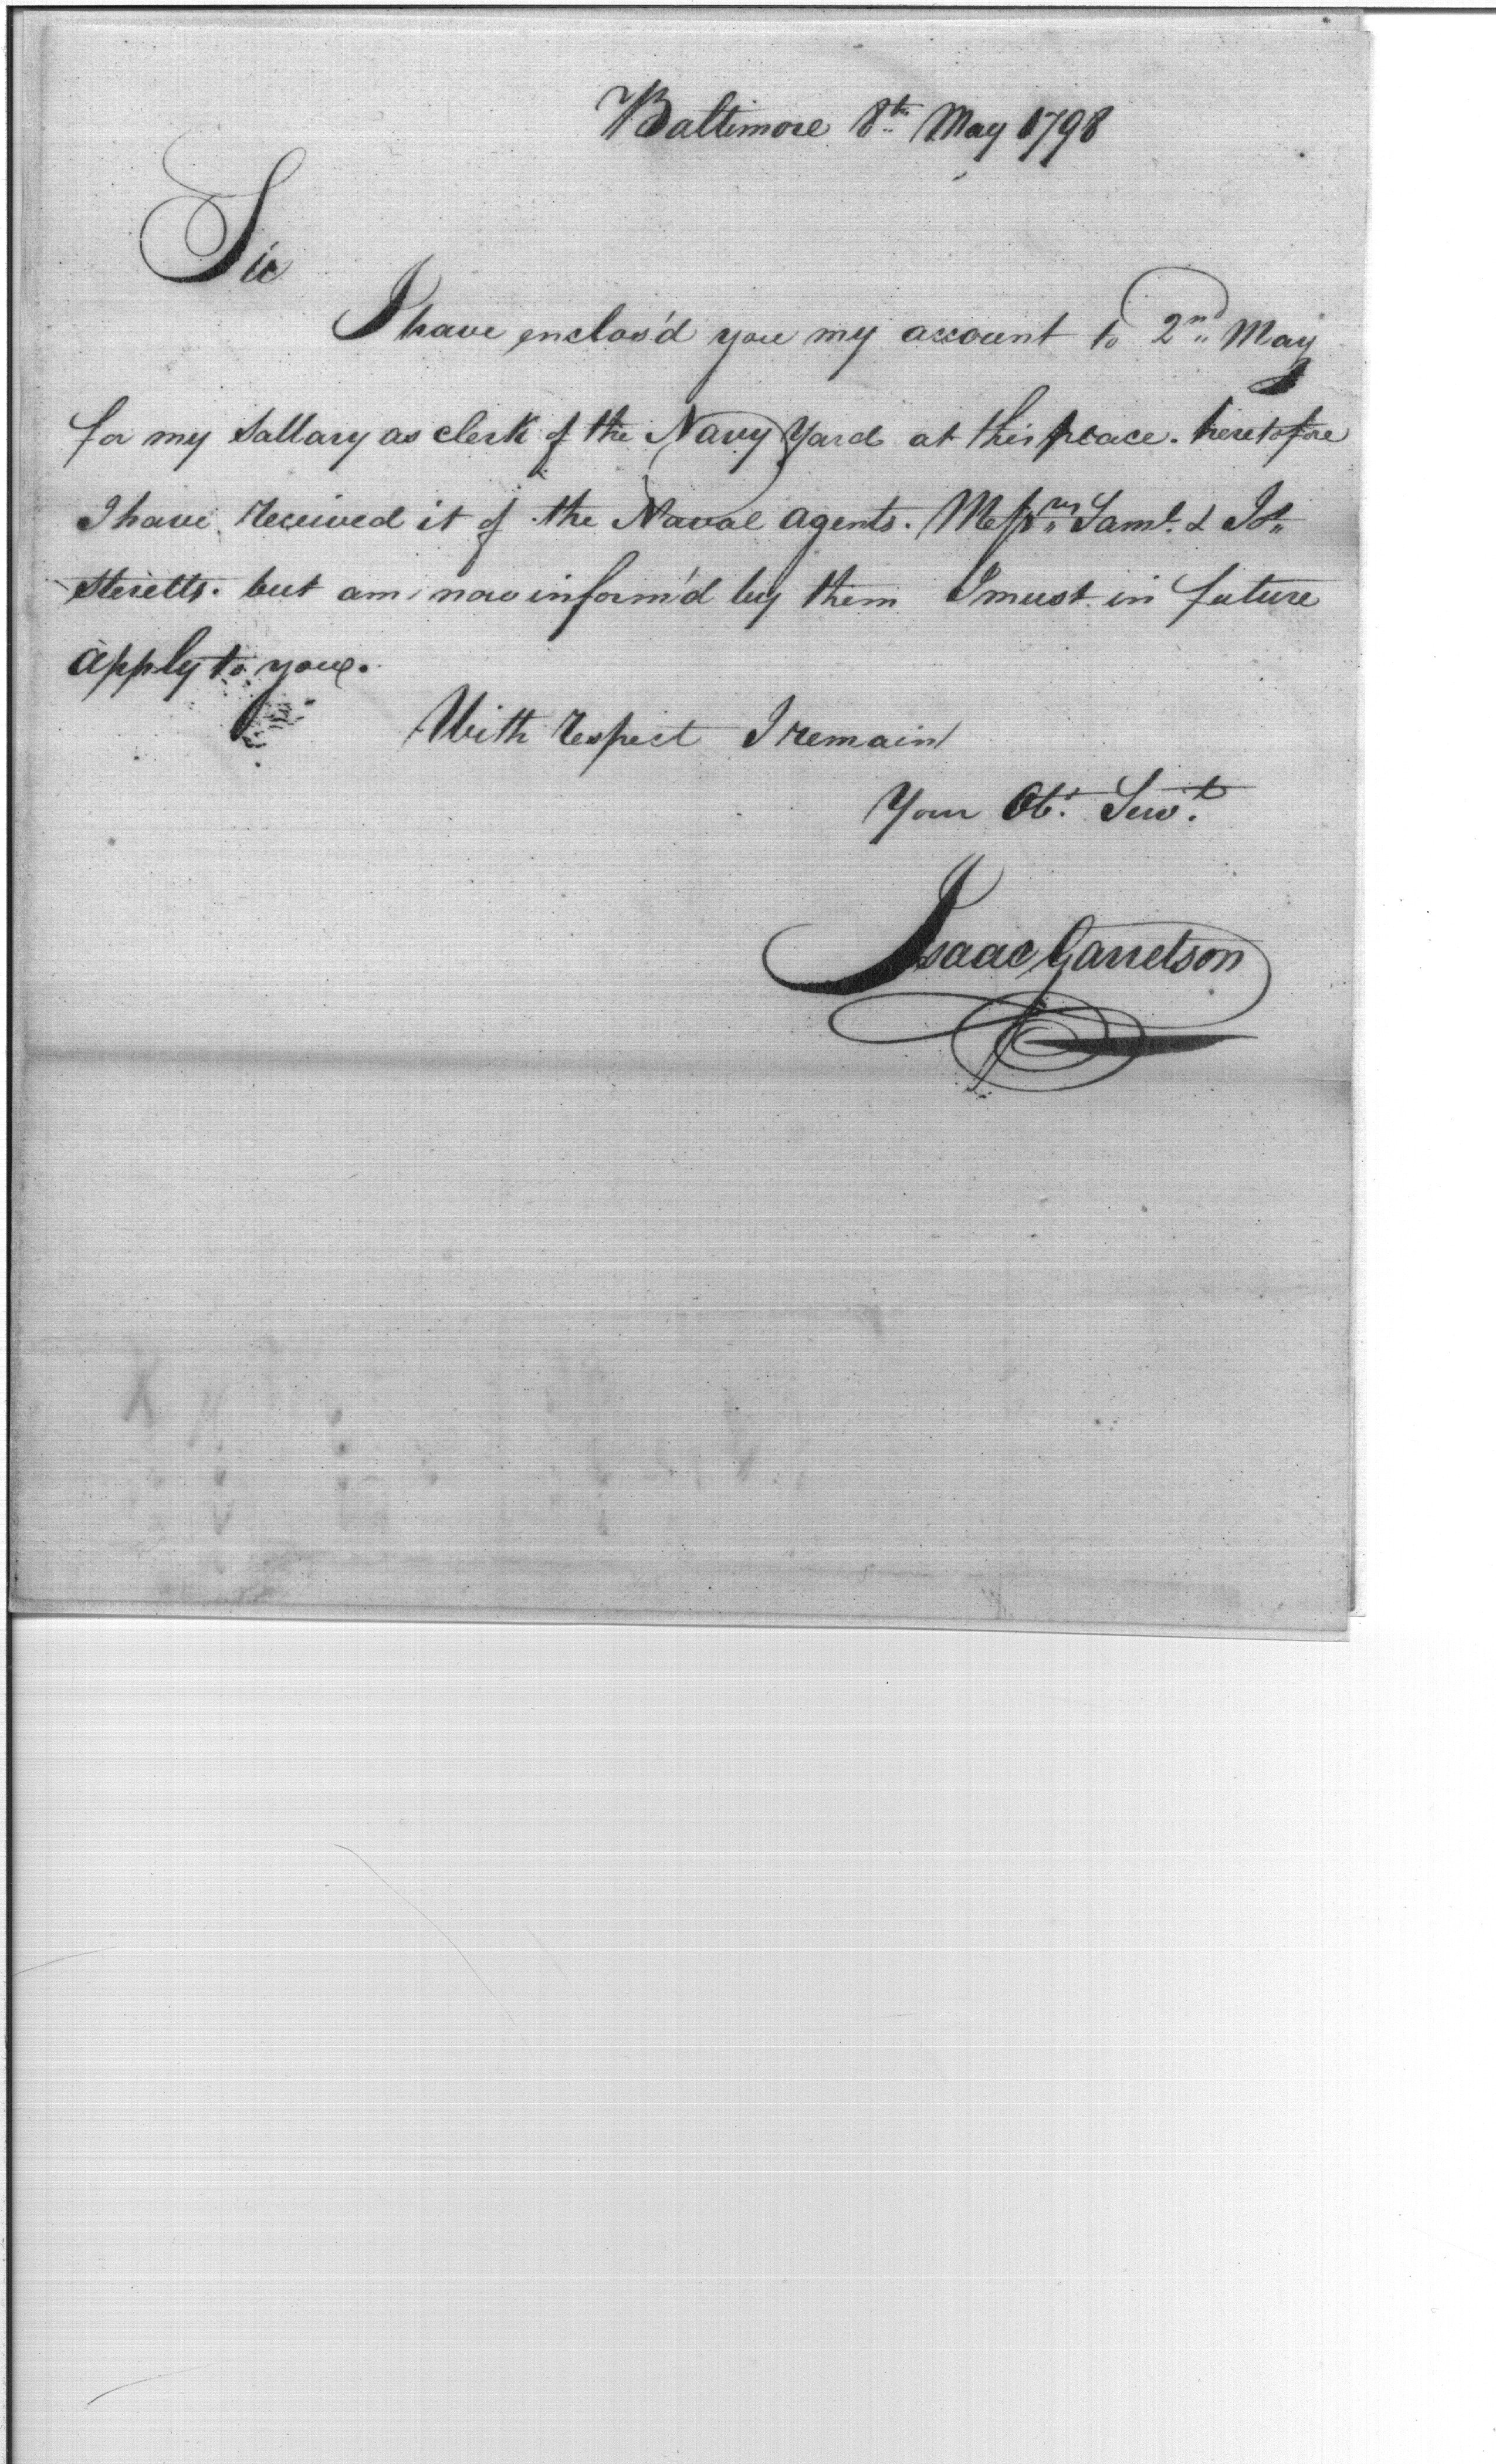 Baltimore 8th May 1798
Sir
I have enclos'd you my account to 2nd May
for my Sallary as clerk of the Navy Yard at this place. heretofore
I have received it of the Naval agents. Messrs Saml. & Jos
Steretts. but am now inform'd by them I must in future
apply to you.
With respect I remain
Your Obt. Servt.
Isaac Garretson